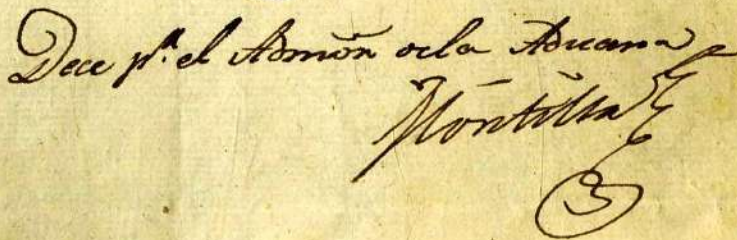 Dece pª. el Admōn dela Aduana
Montilla